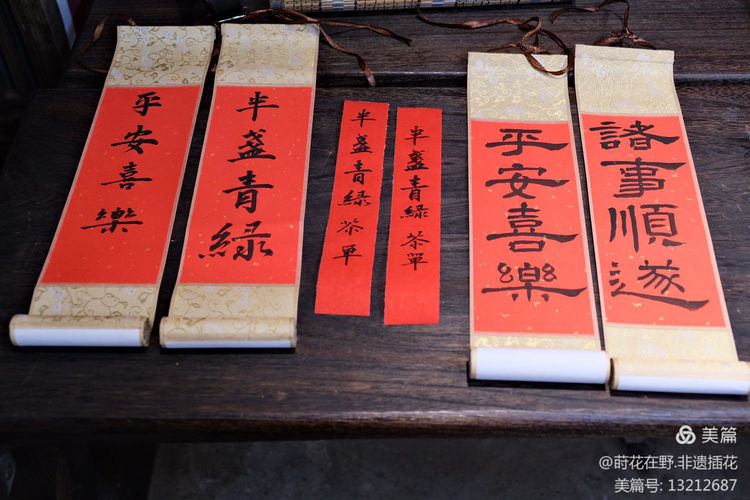 平安喜樂
半盞青綠
半盞青綠茶單
半盞青綠茶單
平安喜樂
諸事順遂
美篇
@莳花在野.非遗插花
美篇号: 13212687